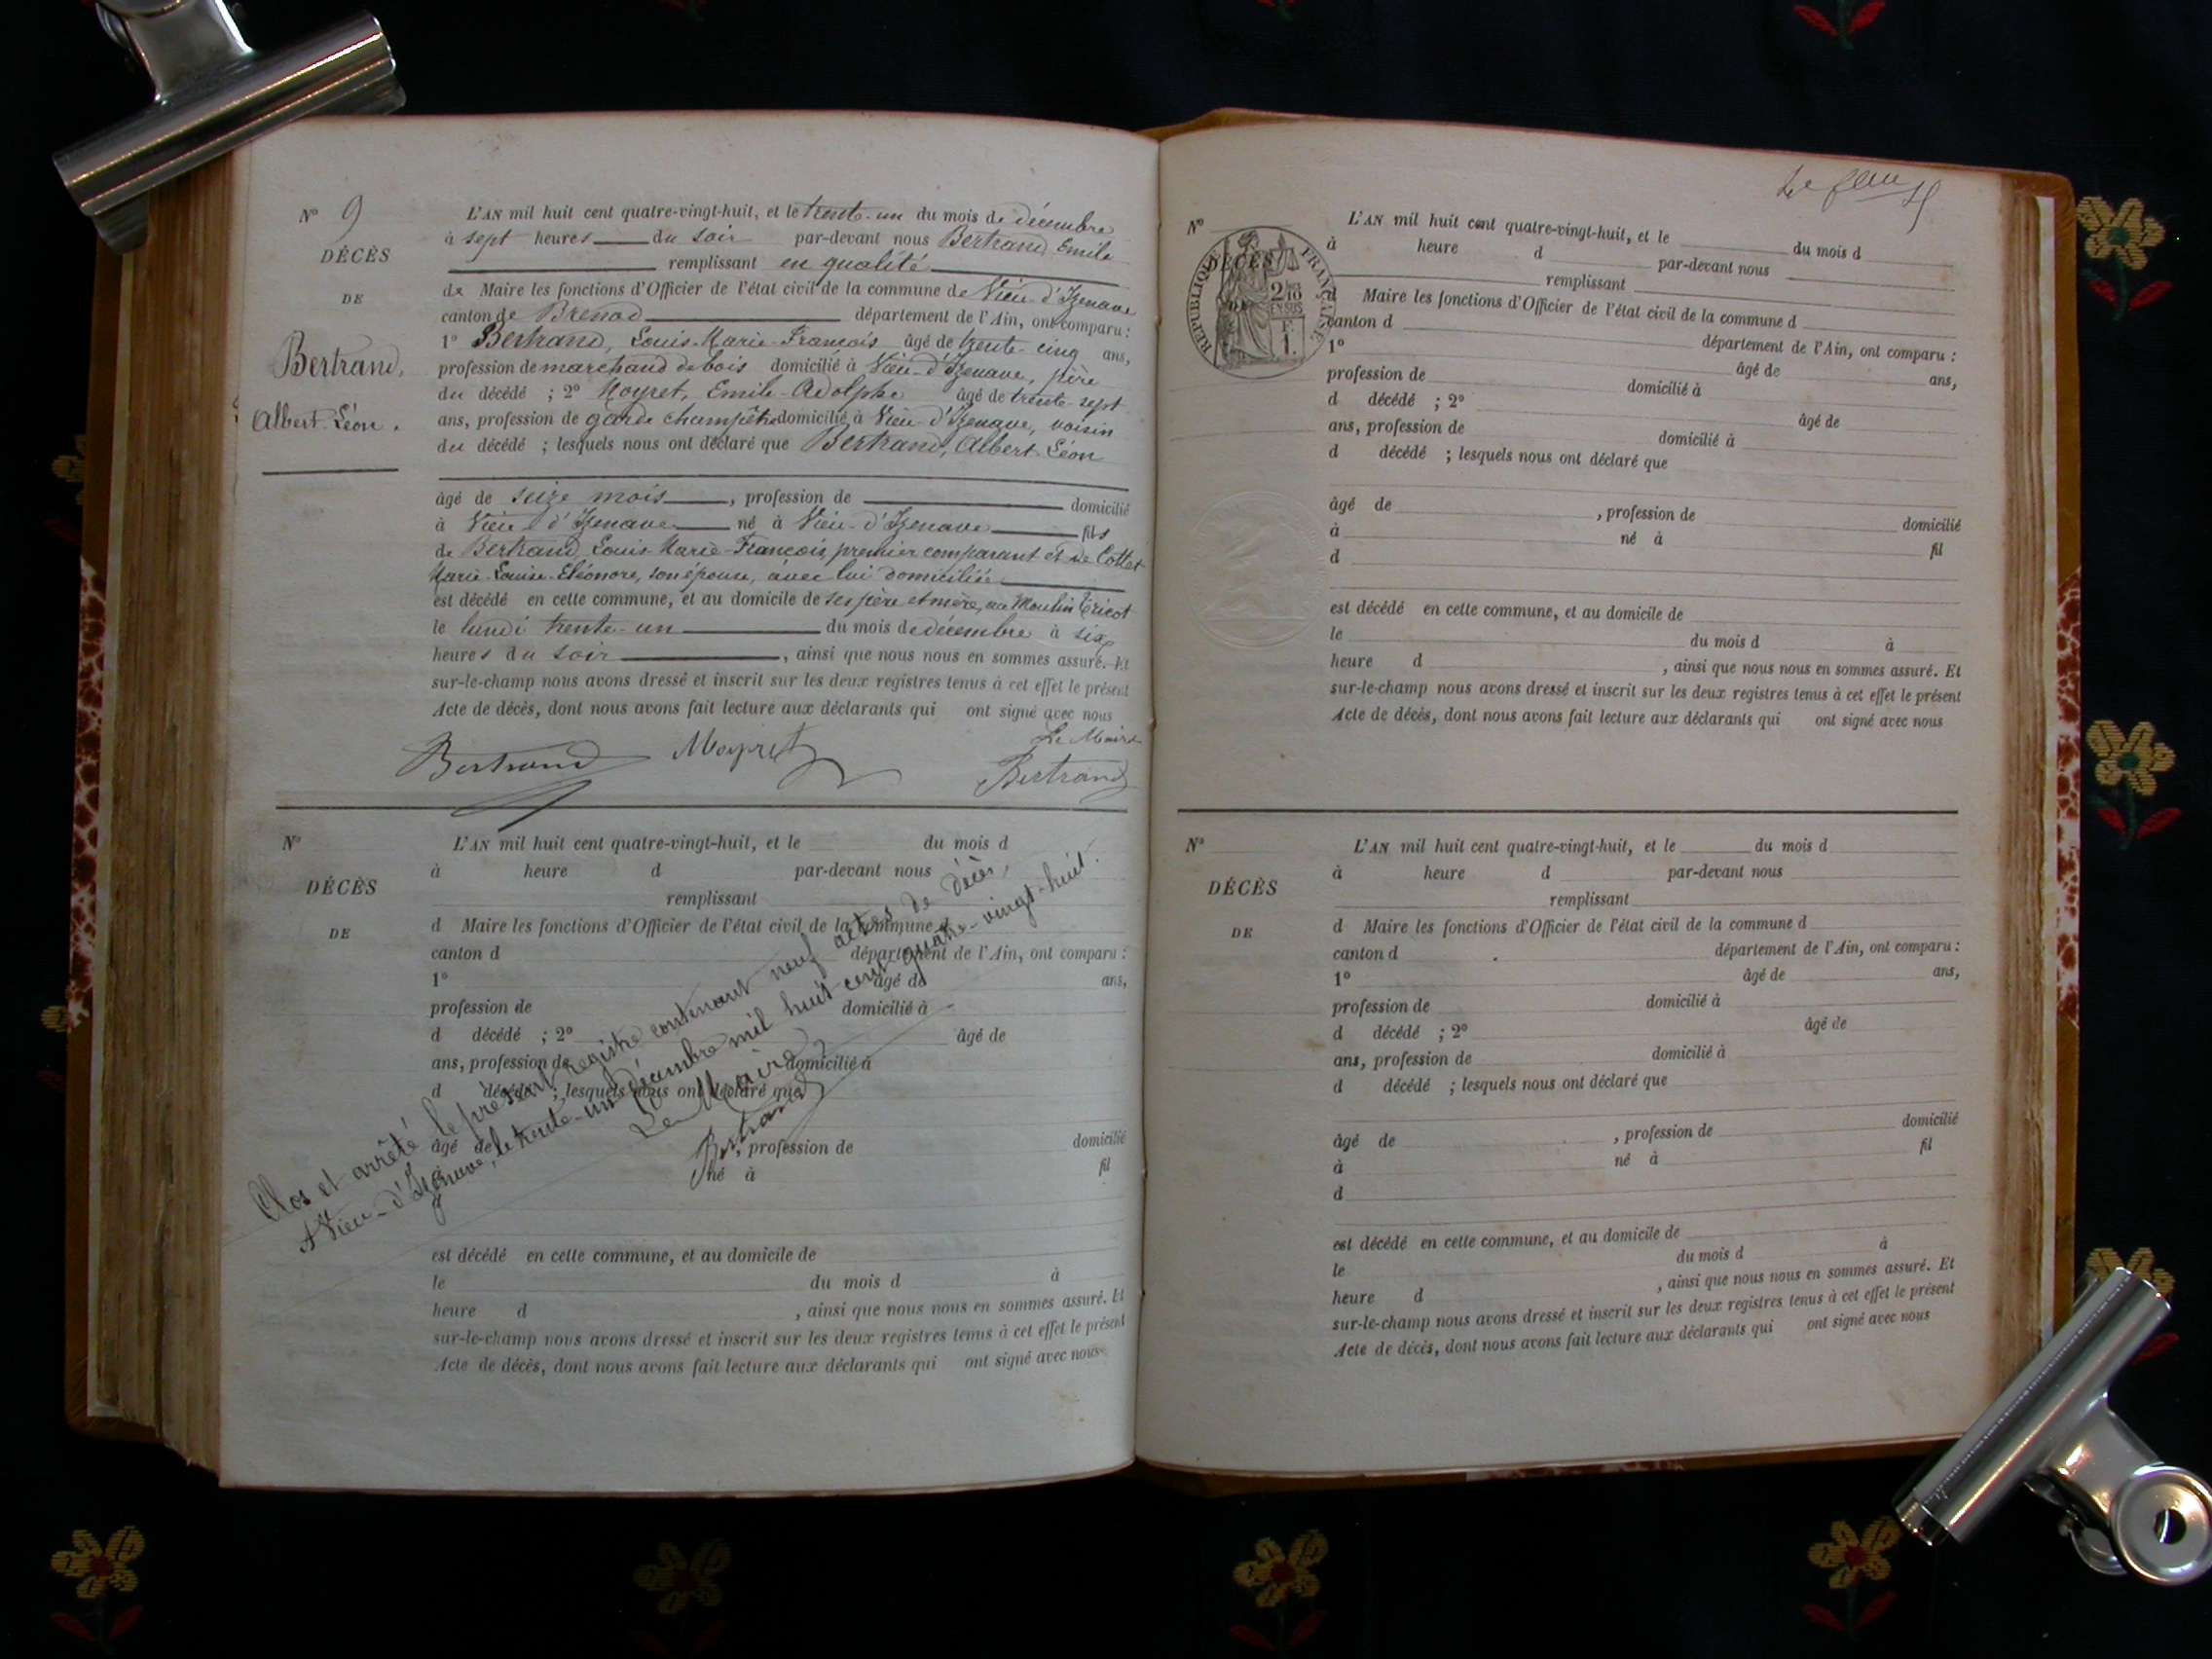 N° 9
DÉCÈS
DE
Bertrand,
Albert-Léon.
L'AN mil huit cent quatre-vingt-huit, et le trente-un du mois de décembre
à sept heures du soir par-devant nous Bertrand Emile
remplissant en qualité
de Maire les fonctions d'Officier de l'état civil de la commune de Vieu-d'Izenave
canton de Brenod département de l'Ain, ont comparu :
1° Bertrand, Louis-Marie-François âgé de trente-cinq ans,
profession de marchand de bois domicilié à Vieu-d'Izenave, père
du décédé ; 2° Moyret, Emile-Adolphe âgé de trente-sept
ans, profession de garde champêtre domicilié à Vieu-d'Izenave, voisin
du décédé ; lesquels nous ont déclaré que Bertrand, Albert-Léon
âgé de seize mois, profession de domicilié
à Vieu-d'Izenave né à Vieu-d'Izenave fils
de Bertrand, Louis-Marie-François, premier comparant et de Cottet
Marie-Louise-Eléonore, son épouse, avec lui domiciliée
est décédé en cette commune, et au domicile de ses père et mère, au Moulin Tricot
le lundi trente-un du mois de décembre à six
heures du soir, ainsi que nous nous en sommes assuré. Et
sur-le-champ nous avons dressé et inscrit sur les deux registres tenus à cet effet le présent
Acte de décès, dont nous avons fait lecture aux déclarants qui ont signé avec nous
Le Maire
Bertrand Moyret Bertrand
N°
DÉCÈS
DE
L'AN mil huit cent quatre-vingt-huit, et le du mois d
à heure d par-devant nous
remplissant
d Maire les fonctions d'Officier de l'état civil de la commune d
canton d département de l'Ain, ont comparu :
1° âgé de ans,
profession de domicilié à
d décédé ; 2° âgé de
ans, profession de domicilié à
d décédé ; lesquels nous ont déclaré que
âgé de , profession de domicilié
à né à fil
d
est décédé en cette commune, et au domicile de
le du mois d à
heure d , ainsi que nous nous en sommes assuré. Et
sur-le-champ nous avons dressé et inscrit sur les deux registres tenus à cet effet le présent
Acte de décès, dont nous avons fait lecture aux déclarants qui ont signé avec nous
Clos et arrêté le présent registre contenant neuf actes de décès,
A Vieu-d'Izenave, le trente-un décembre mil huit cent quatre-vingt-huit.
Le Maire,
Bertrand
N°
DÉCÈS
DE
RÉPUBLIQUE FRANÇAISE
2/10 EN SUS
F. 1.
L'AN mil huit cent quatre-vingt-huit, et le du mois d
à heure d par-devant nous
remplissant
d Maire les fonctions d'Officier de l'état civil de la commune d
canton d département de l'Ain, ont comparu :
1° âgé de ans,
profession de domicilié à
d décédé ; 2° âgé de
ans, profession de domicilié à
d décédé ; lesquels nous ont déclaré que
âgé de , profession de domicilié
à né à fil
d
est décédé en cette commune, et au domicile de
le du mois d à
heure d , ainsi que nous nous en sommes assuré. Et
sur-le-champ nous avons dressé et inscrit sur les deux registres tenus à cet effet le présent
Acte de décès, dont nous avons fait lecture aux déclarants qui ont signé avec nous
N°
DÉCÈS
DE
L'AN mil huit cent quatre-vingt-huit, et le du mois d
à heure d par-devant nous
remplissant
d Maire les fonctions d'Officier de l'état civil de la commune d
canton d département de l'Ain, ont comparu :
1° âgé de ans,
profession de domicilié à
d décédé ; 2° âgé de
ans, profession de domicilié à
d décédé ; lesquels nous ont déclaré que
âgé de , profession de domicilié
à né à fil
d
est décédé en cette commune, et au domicile de
le du mois d à
heure d , ainsi que nous nous en sommes assuré. Et
sur-le-champ nous avons dressé et inscrit sur les deux registres tenus à cet effet le présent
Acte de décès, dont nous avons fait lecture aux déclarants qui ont signé avec nous